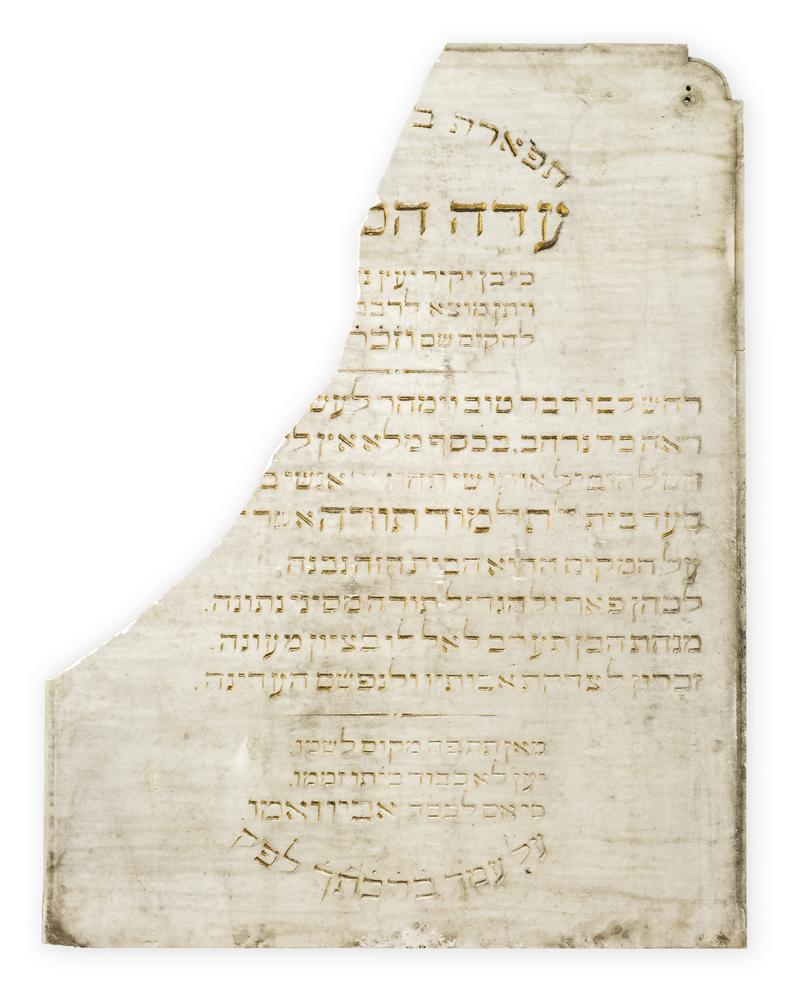 תפארת ב
עדה המ
כי בן יקיר יעץ
ויתן מוצא לרבב
להקים שם וזכר
רחש לבו דבר טוב וימהר לעש
ראה כר נרחב, בכסף מלא אין
אנשי ב
בעד בית תלמוד תורה אשר
על המקום ההוא הבית הזה נבנה,
לכהן פאר ולהגדיל תורה מסיני נתונה.
מנחת הבן תערב לאל לו בציון מעונה.
זכרון לצדקת אבותיו ולנפשם העדינה.
מאן תת פה מקום לשמו,
יען לא כבוד ביתו זממו.
כי אם לכבד אביו ואמו.
על עמך ברכתך לפק